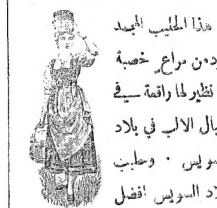 هذا الحليب المجمد
من مراعٍ خصبة
نظير لها راقعة في
بال الالب في بلاد
سويس . وحليب
لاد السويس افضل